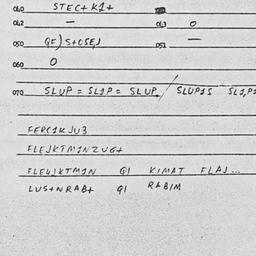 040 STEC+ K1+
042 — 043 0
050 GF) S+OSEJ 051 —
060 0
070 SLUP = SL1P = SLUP / SLUP1S SL1,P1
FEPC1KJU3
FLEJKTM1NZUG+
FLE4JKTM1N GI KIMAT FLAJ...
LUS+NRAB+ GI RABIM